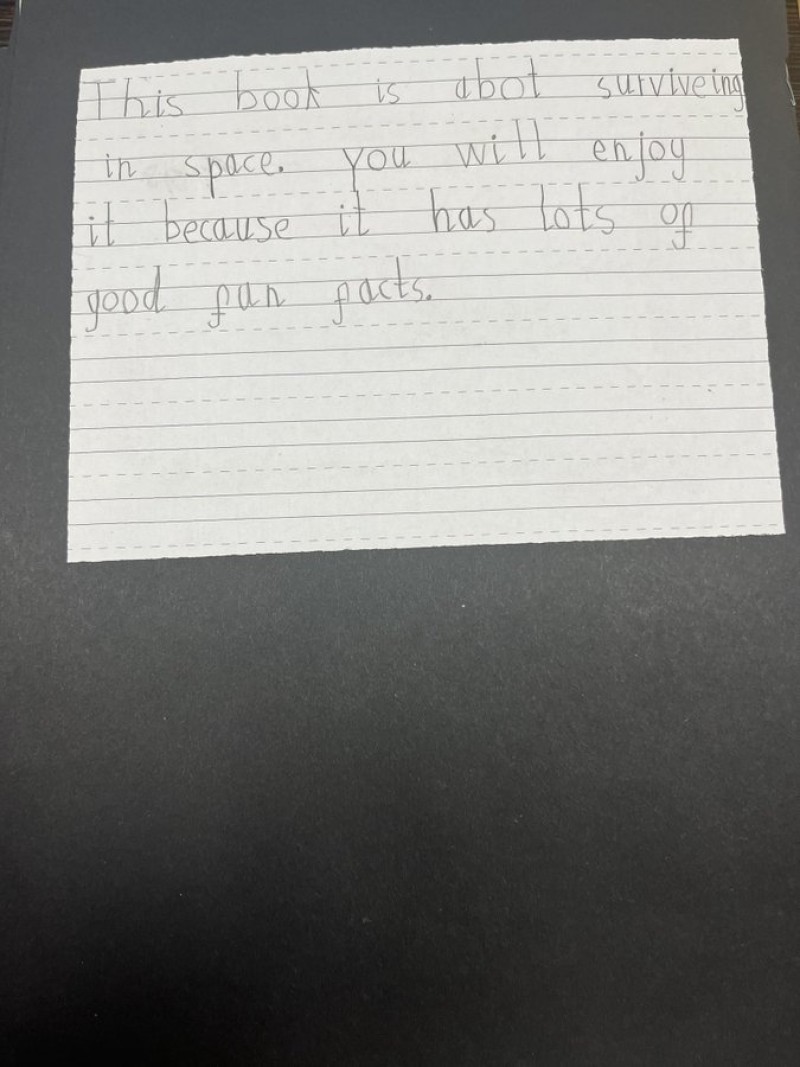 This book is abot surviveing
in space. you will enjoy
it because it has lots of
good fun facts.